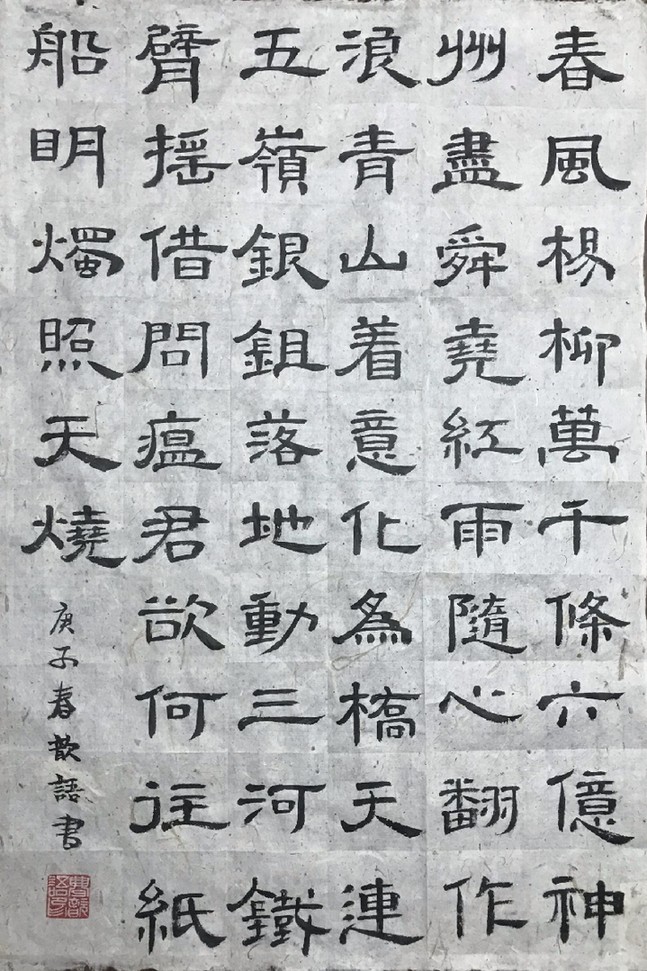 春風楊柳萬千條六億神
州盡舜堯紅雨隨心翻作
浪青山着意化為橋天連
五嶺銀鉏落地動三河鐵
臂搖借問瘟君欲何往紙
船明燭照天燒
庚子春語書